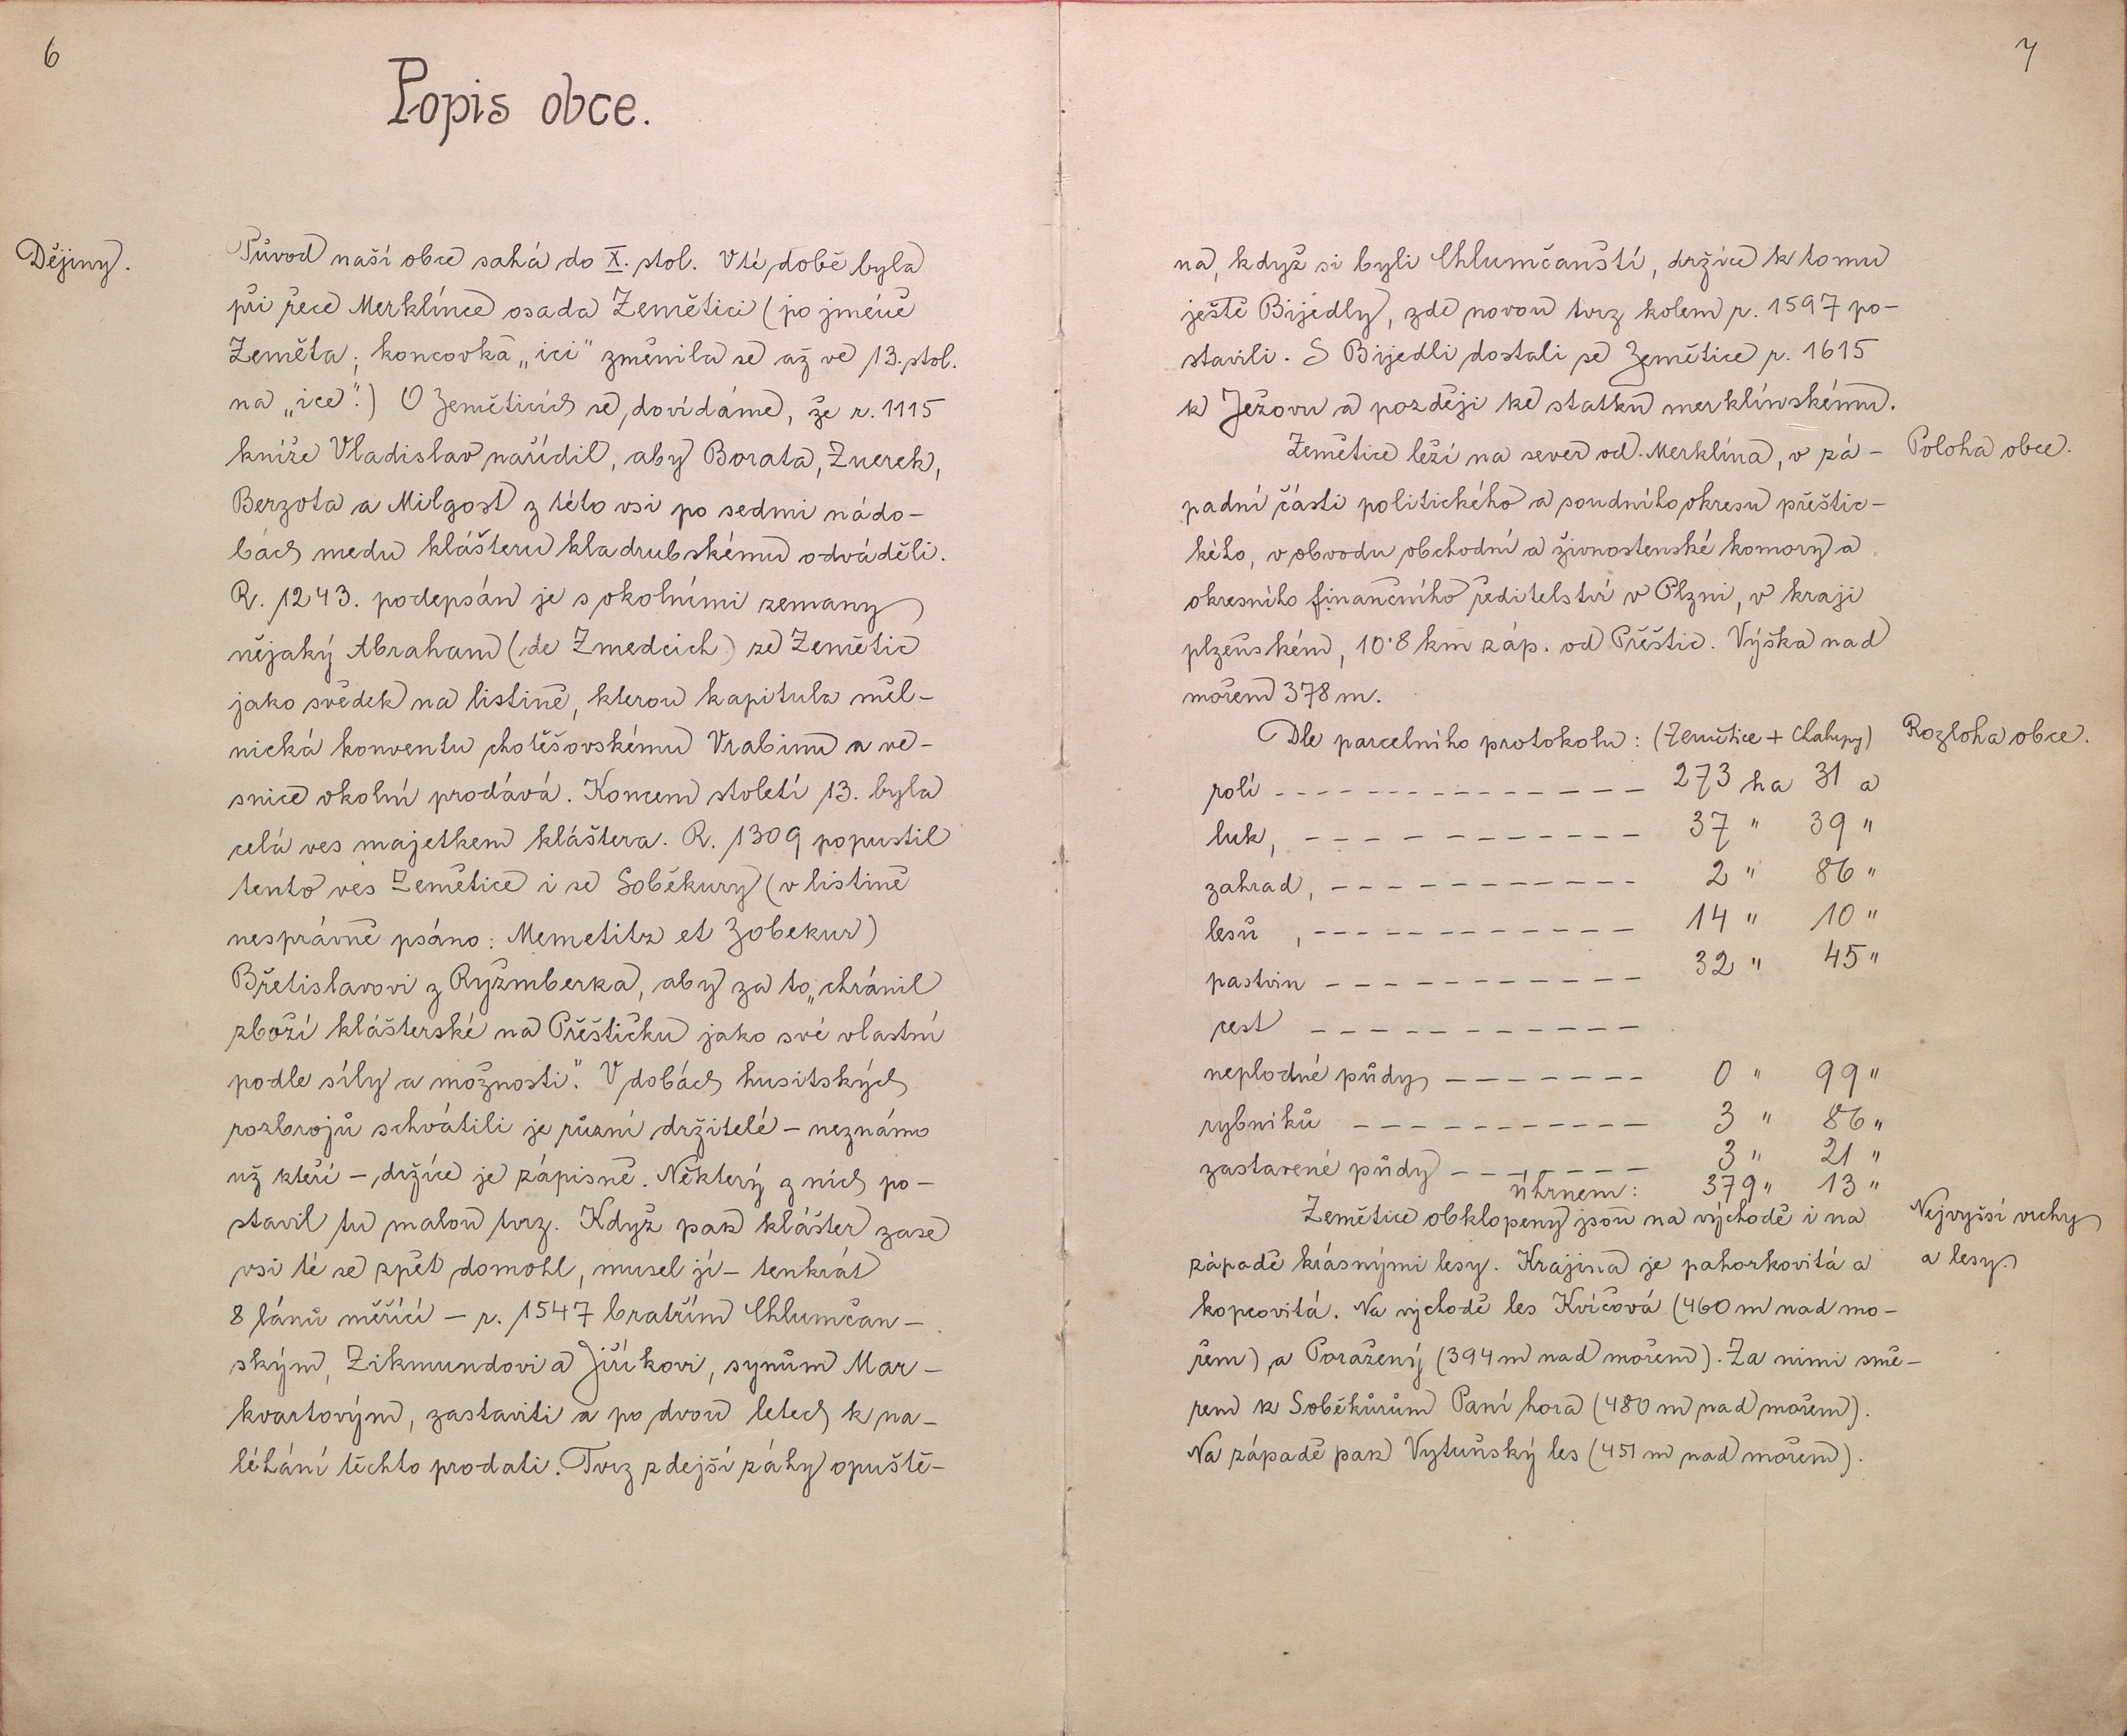 6
Popis obce.
Dějiny.
Původ naší obce sahá do X. stol. V té době byla
při řece Merklínce osada Zemětici (po jméně
Zeměta; koncovka „ici" změnila se až ve 13. stol.
na „ice".) O Zeměticích se dovídáme, že r. 1115
kníže Vladislav nařídil, aby Borata, Zuerek,
Berzota a Milgost z této vsi po sedmi nádo-
bách medu klášteru kladrubskému odváděli.
R. 1243. podepsán je s okolními zemany
nějaký Abraham (de Zmedcich) ze Zemětic
jako svědek na listině, kterou kapitula měl-
nická konventu chotěšovskému Vrabinu a ve-
snice okolní prodává. Koncem století 13. byla
celá ves majetkem kláštera. R. 1309 popustil
tento ves Zemětice i se Soběkury (v listině
nesprávně psáno: Memetitz et Zobekur)
Břetislavovi z Ryžmberka, aby za to „chránil
zboží klášterské na Přešticku jako své vlastní
podle síly a možnosti". V dobách husitských
rozbrojů schvátili je různí držitelé – neznámo
už kteří – držíce je zápisně. Některý z nich po-
stavil tu malou tvrz. Když pak klášter zase
vsi té se zpět domohl, musel ji – tenkrát
8 lánů měřící – r. 1547 bratřím Chlumčan-
ským, Zikmundovi a Jiříkovi, synům Mar-
kvartovým, zastaviti a po dvou letech k na-
léhání těchto prodati. Tvrz zdejší záhy opuště-
7
na, když si byli Chlumčanští, držíce k tomu
ještě Bijedly, zde novou tvrz kolem r. 1597 po-
stavili. S Bijedli dostali se Zemětice r. 1615
k Ježovu a později ke statku merklínskému.
Zemětice leží na sever od Merklína, v zá-
Poloha obce.
padní části politického a soudního okresu přeštic-
kého, v obvodu obchodní a živnostenské komory a
okresního finančního ředitelství v Plzni, v kraji
plzeňském, 10·8 km záp. od Přeštic. Výška nad
mořem 378 m.
Dle parcelního protokolu: (Zemětice + Chalupy)
Rozloha obce.
rolí - - - - - - - - - - - - - - 273 ha 31 a
luk, - - - - - - - - - - - - 37 " 39 "
zahrad, - - - - - - - - - - - 2 " 86 "
lesů , - - - - - - - - - - - - 14 " 10 "
pastvin - - - - - - - - - - - 32 " 45 "
cest - - - - - - - - - - - -
neplodné půdy - - - - - - - 0 " 99 "
rybníků - - - - - - - - - - - 3 " 86 "
zastavené půdy - - - - - - - 3 " 21 "
úhrnem: 379 " 13 "
Zemětice obklopeny jsou na východě i na
Nejvyšší vrchy
a lesy.
západě krásnými lesy. Krajina je pahorkovitá a
kopcovitá. Na východě les Kvíčová (460 m nad mo-
řem) a Poražený (394 m nad mořem). Za nimi smě-
rem k Soběkůrům Paní hora (480 m nad mořem).
Na západě pak Vytuňský les (451 m nad mořem).